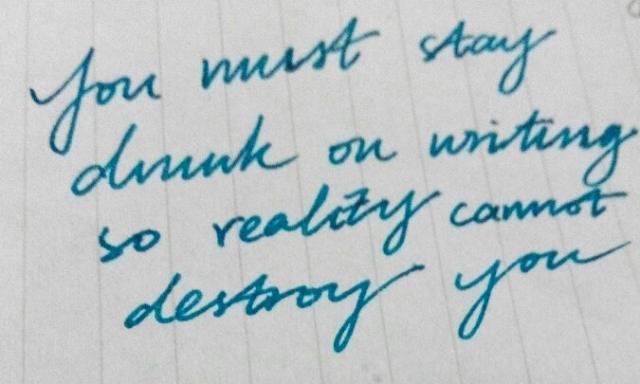 You must stay
drunk on writing
so reality cannot
destroy you